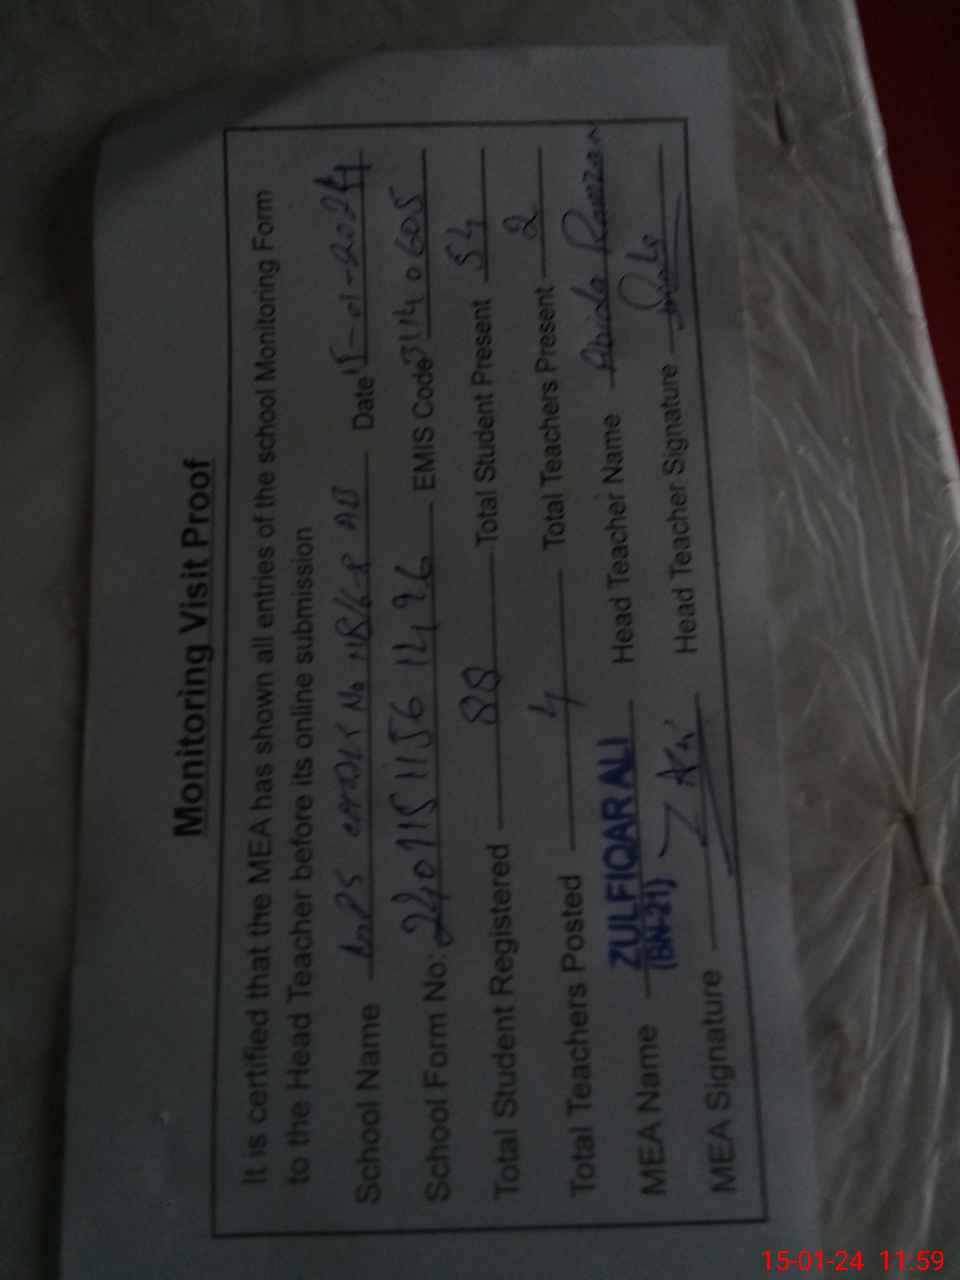 Monitoring Visit Proof
It is certified that the MEA has shown all entries of the school Monitoring Form
to the Head Teacher before its online submission
School Name Date 15-01-2024
School Form No: 240115115611496 EMIS Code 31140605
Total Student Registered 88 Total Student Present 54
Total Teachers Posted 4 Total Teachers Present 2
MEA Name ZULFIQAR ALI Head Teacher Name Abida Ramzan
(BN-21)
MEA Signature Head Teacher Signature
15-01-24 11.59